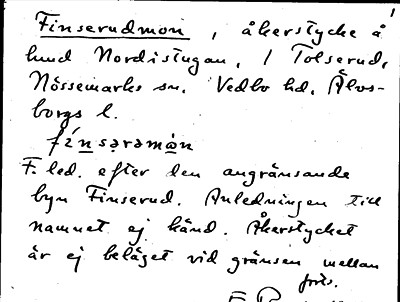 Finserudmon, åkerstycke å
hmd Nordistugan, 1 Tolserud,
Nössemarks sn. Vedbo hd. Älvs-
borgs l.
fi´nsərəmòn
F. led. efter den angränsande
byn Finserud. Anledningen till
namnet ej känd. Åkerstycket
är ej beläget vid gränsen mellan
forts.